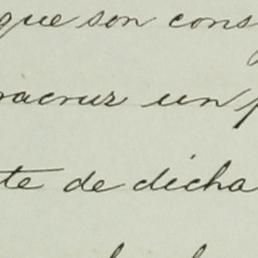 que son cons
racruz un p
te de dicha